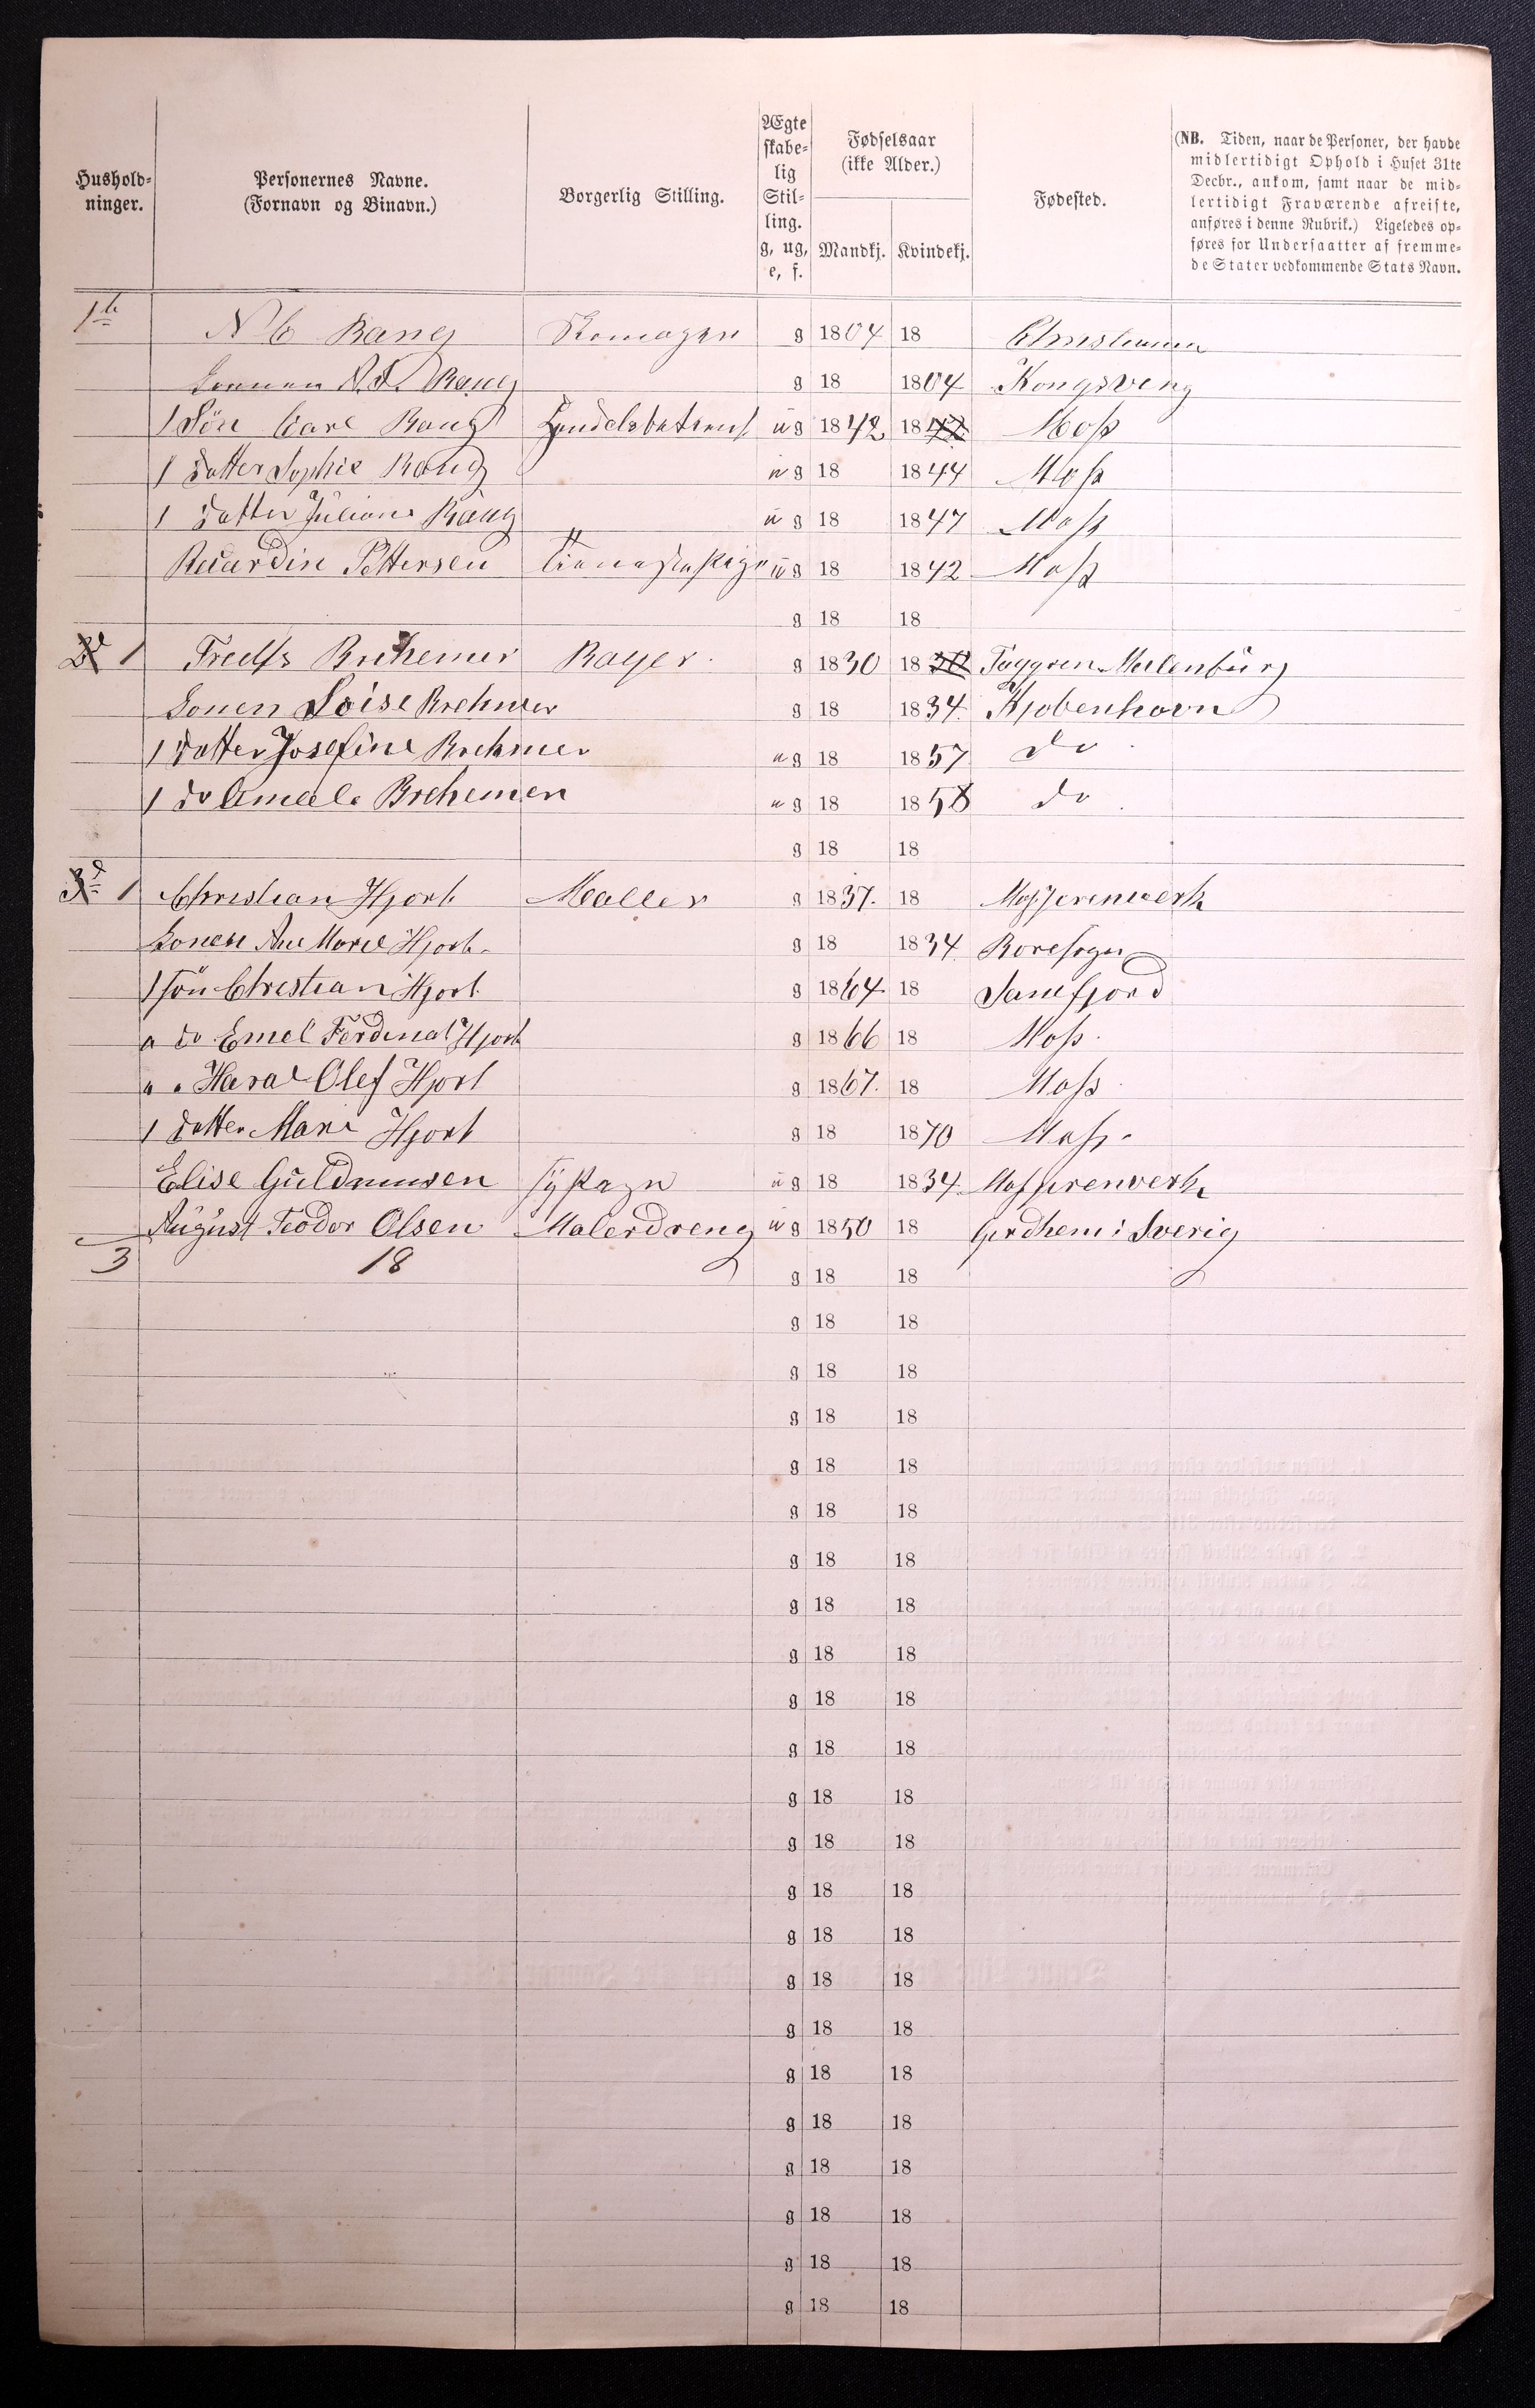 Hushold-
ninger.
Personernes Navne.
(Fornavn og Binavn.)
Borgerlig Stilling.
Ægte
skabe-
lig
Stil-
ling.
g, ug,
e, f.
Fødselsaar
(ikke Alder.)
Mandkj. Kvindekj.
Fødested.
(NB. Tiden, naar de Personer, der havde
midlertidigt Ophold i Huset 31te
Decbr., ankom, samt naar de mid-
lertidigt Fraværende afreiste,
anføres i denne Rubrik.) Ligeledes op-
føres for Undersaatter af fremme-
de Stater vedkommende Stats Navn.
1te N C Bang Skomager g 1804 18 Christiania
Konen Bang g 18 1804 Kongsving
1 Søn Carl Bang ug 1842 18 Moss
1 Datter Sophie Bang ug 18 1844 Moss
1 Datter Juliane Bang ug 18 1847 Moss
Ricardine Pettersen ug 18 1842 Moss
g 18 18
1 Fredk Brehemer Bager g 1830 1830
Konen Loise Brehmer g 18 1834 Kjobenhavn
1 Datter Josefine Brehmer ug 18 1857 do
1 do Amale Brehemer ug 18 1858 do
g 18 18
1 Christian Hjort Maller g 1837. 18 Mossjernverk
Konen Ane Marie Hjort g 18 1834
1 Søn Christian Hjort g 1864 18 Sanefjord
" do Emel Ferdinat Hjort g 1866 18 Moss
" " Haral Olef Hjort g 1867. 18 Moss
1 Datter Mari Hjort g 18 1870 Moss
Elise Guldmunsen ug 18 1834 Mossjernverk
August Teodor Olsen Malerdreng ug 1850 18 Gerdhem i Sverig
3 18 g 18 18
g 18 18
g 18 18
g 18 18
g 18 18
g 18 18
g 18 18
g 18 18
g 18 18
g 18 18
g 18 18
g 18 18
g 18 18
g 18 18
g 18 18
g 18 18
g 18 18
g 18 18
g 18 18
g 18 18
g 18 18
g 18 18
g 18 18